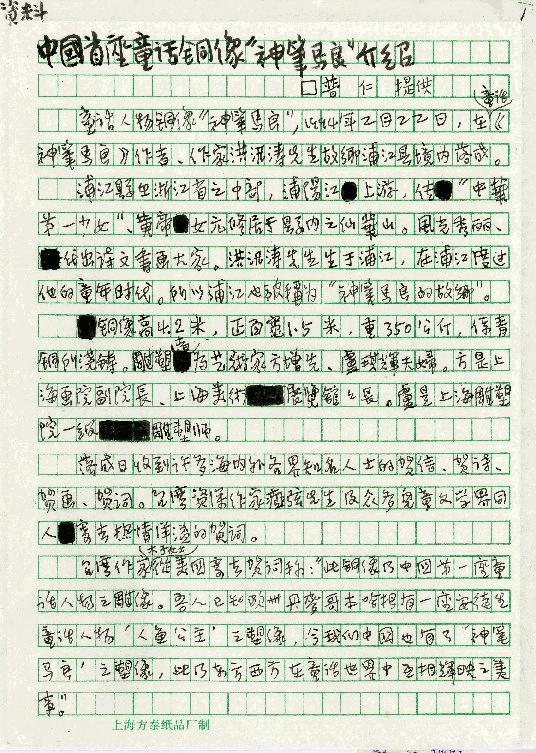 资料
中國首座童话铜像“神筆馬良”介绍
普仁 提供
童话人物铜像“神筆馬良”,1994年2月22日,在童话《
神筆馬良》作者、作家洪汛涛先生故鄉浦江县境内落成。
浦江縣在浙江省之中部,浦陽江上游,传“中華
第一少女”、黄帝女元修居于縣内之仙華山。風光秀丽、
代出诗文書画大家。洪汛涛先生生于浦江,在浦江度过
他的童年时代。所以浦江也被稱为“神筆馬良的故鄉”。
铜像高4.2米,正面宽1.5米,重350公斤,係青
铜所浇铸。雕塑者为艺術家方增先、盧琪輝夫婦。方是上
海画院副院長、上海美術展覽館館長。盧是上海雕塑
院一级雕塑师。
落成日收到许多海内外各界知名人士的贺信、贺诗、
贺画、贺词。台灣資深作家瘂弦先生及众多兒童文学界同
人寄去热情洋溢的贺词。
台灣作家木子女士從美國寄去贺词称:“此铜像乃中國第一座童
话人物之雕像。吾人已知歐洲丹麥哥本哈根有一座安徒生
童话人物‘人鱼公主’之塑像,今我们中國也有了‘神筆
馬良’之塑像,此乃东方西方在童话世界中互相輝映之美
事”。
上海方泰纸品厂制